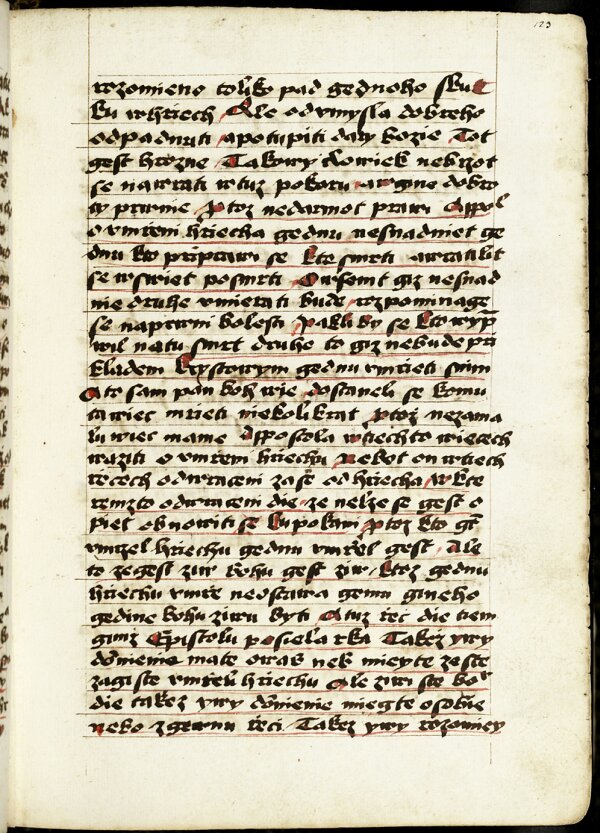 123
rozomieno toliko pad gednoho sku
ku w hriech Ale od vmysla dobreho
odpadnuti a potupiti dary bozie Tot
gest hrozne Takowy clowiek nebrzot
se nawrati w tuz pokoru a w gine dobro
ty prwnie Protoz nedarmot prawi
o vmrzeni hriecha gednu nesnadniet ge
dnu kto priprawi se k te smrti a wratilit
se w swiet po smrti Owsemt giz nesnad
nie druhe vmierati bude rozpominage
se na prwni bolesti Pakli by se kto
wil na tu smrt druhe to giz nebude pri
kladem Krystowym gednu vmrieti s nim
A to sam pan buoh wie dostaneli se komu
ta wiec mrieti niekolikrat Protoz nezama
lu wiec mame Appostola w tiechto wiecech
waziti o vmrzeni hriechu Nebot on w tiech
recech odwraceni zase od hriecha w kte
remzto odwraceni die ze nelze se gest o
piet obnowiti se ku pokani Protoz kto
vmrzel hriechu gednu vmrzel gest Ale
to ze gest ziw bohu gest ziw ktoz gednu
hriechu vmre neostawa gemu gineho
gedine bohu ziwu byti A tuz rec die tiem
gimz Epistolu posiela rka Takez y wy
domienie mate o was nek mieyte ze ste
zagiste vmrzeli hriechu Ale ziwi ste
die takez y wy domienie mieyte osobie
nebo zgewnu reci Takez y wy rozomiey